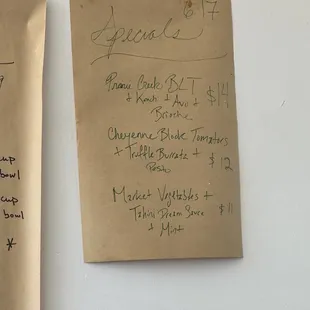 6/7
Specials
Prairie Creek BLT
+ Kimchi + Avo + $14
Brioche
Cheyenne Blonde Tomatoes
+ Truffle Burrata + $12
Pesto
Market Vegetables +
Tahini Dream Sauce $11
+ Mint
cup
bowl
cup
bowl
*